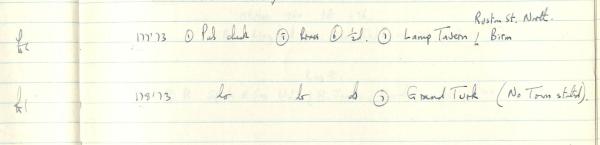 Ruston St. North.
177'73 ① Pub check ⑤ brass ⑥ ½d. ⑦ Lamp Tavern, Birm
178'73 do do do ⑦ Grand Turk (No Town stated).